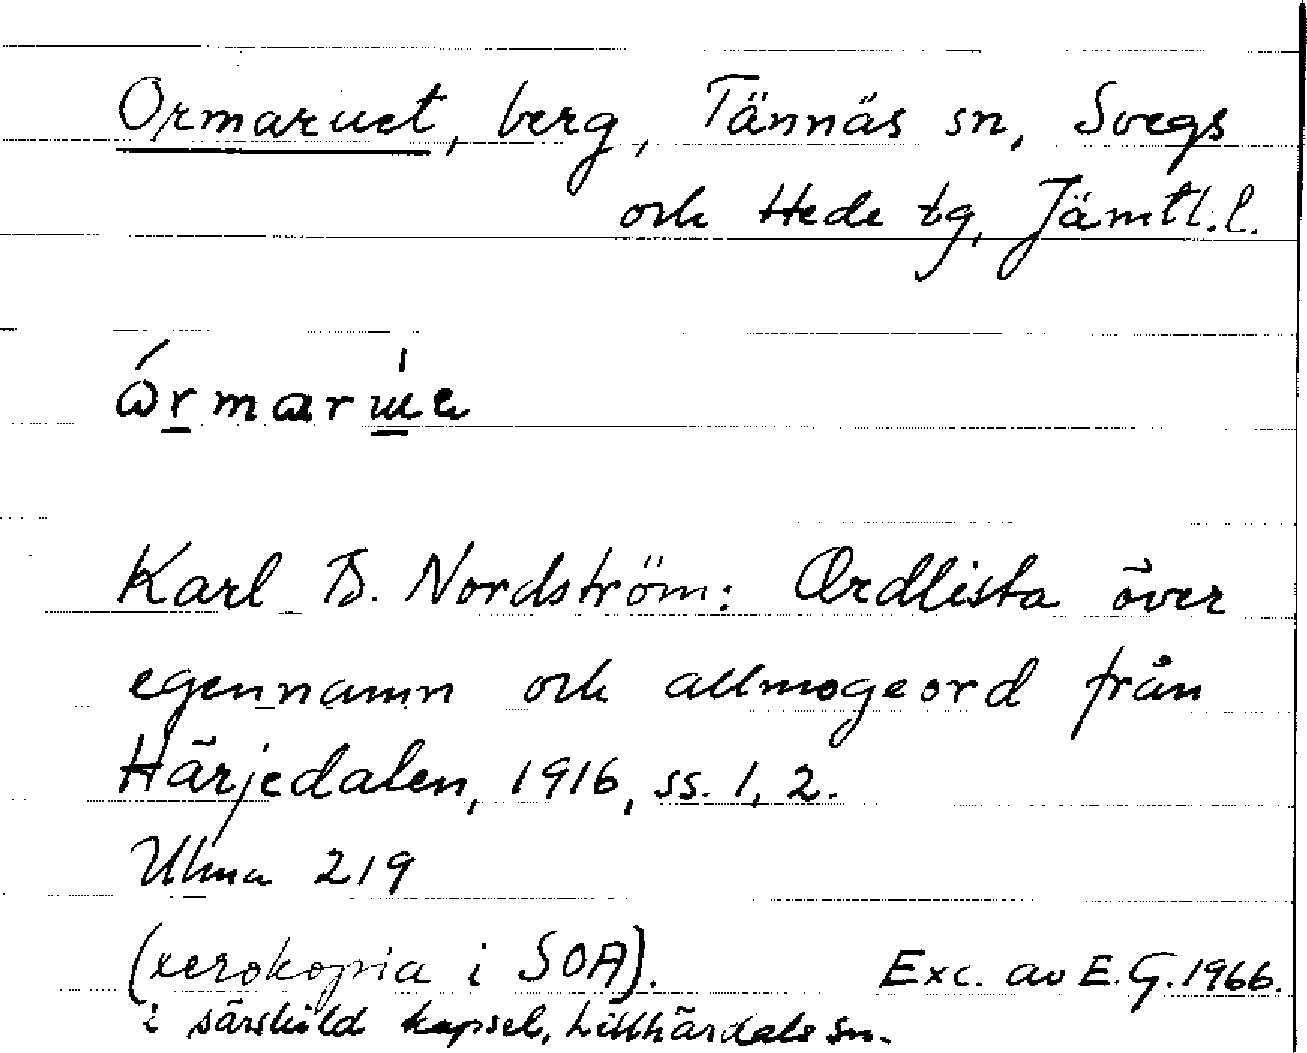 Ormaruet, berg, Tännäs sn, Svegs
och Hede tg, Jämtl.l.
Karl B. Nordström: Ordlista över
egennamn och allmogeord från
Härjedalen, 1916, ss. 1, 2.
Ulma 219
(xerokopia i SOA). Exc. av E.G. 1966.
i särskild kapsel, Lillhärdals sn.